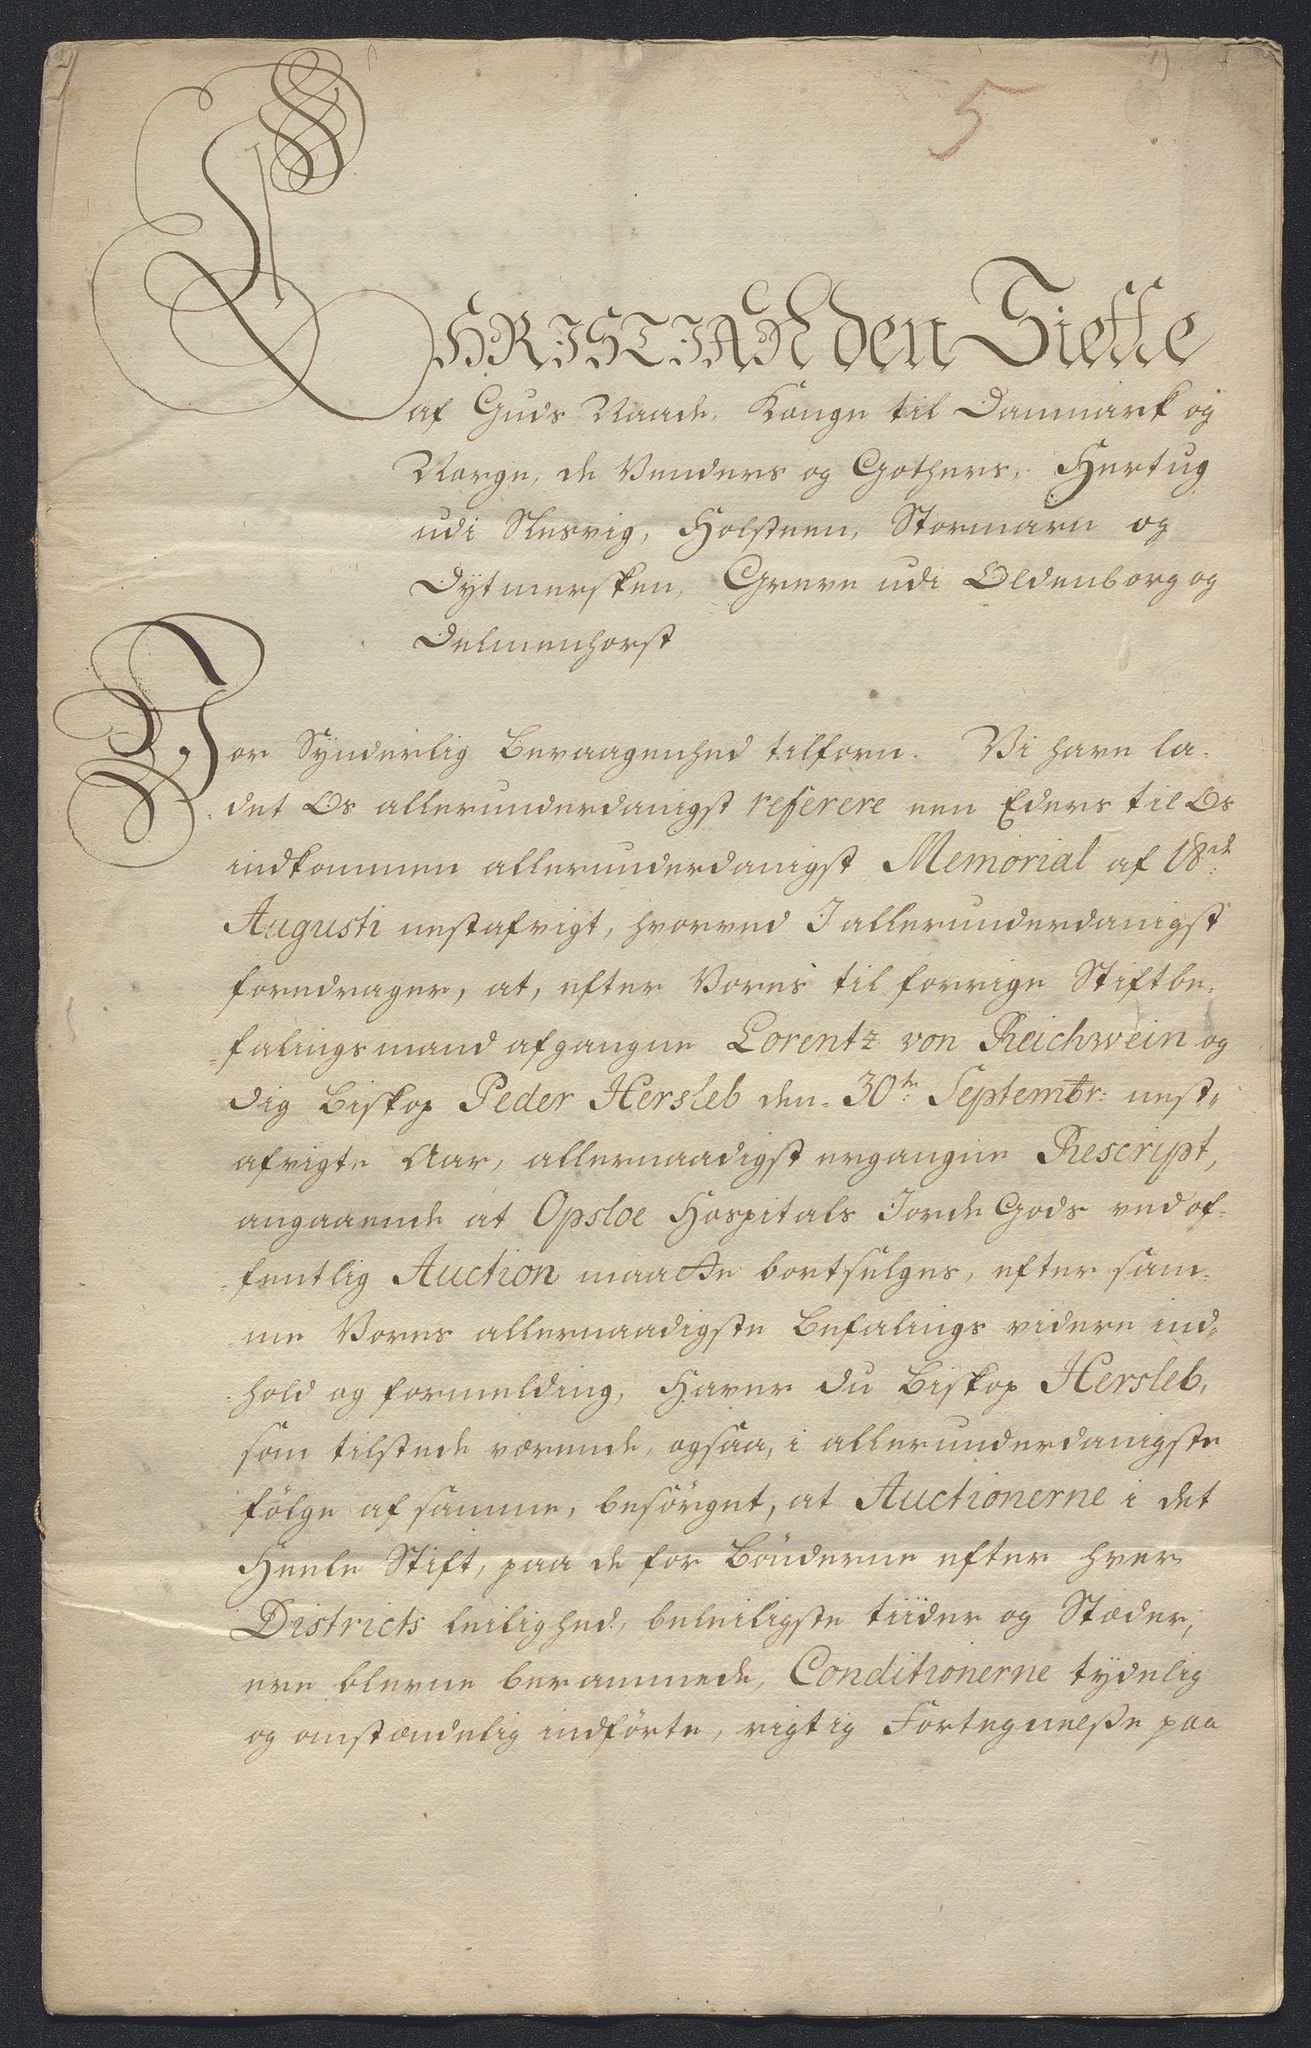 5
CHRISTIAN den Siette
af Guds Naade, Konge til Danmark og
Norge, de Venders og Gothers, Hertug
udi Slesvig, Holsteen, Stormarn og
Dytmersken, Greve udi Oldenborg og
Delmenhorst
Vor Synderlig Bevaagenhed tilforn. Vi have la-
det Os allerunderdanigst referere een Eders til Os
indkommen allerunderdanigst Memorial af 18de
Augusti nestafvigt, hvorved I allerunderdanigst
foredrager, at, efter Vores til forrige Stiftbe-
falingsmand afgangne Lorentz von Reichwein og
dig Biskop Peder Hersleb den 30te Septembr: nest-
afvigte Aar, allernaadigst ergangne Rescript,
angaaende at Opsloe Hospitals Jorde Gods ved of-
fentlig Auction maatte bortsælges, efter sam-
me Vores allernaadigste Befalings videre ind-
hold og formelding, Haver du Biskop Hersleb,
som tilstede værende, ogsaa, i allerunderdanigste
følge af samme, besørget, at Auctionerne i det
Heele Stift, paa de for Bønderne efter hver
Districts leilighed, beleiligste tiider og Stæder,
ere blevne berammede, Conditionerne tydelig
og omstændelig indførte, rigtig Fortegnelße paa